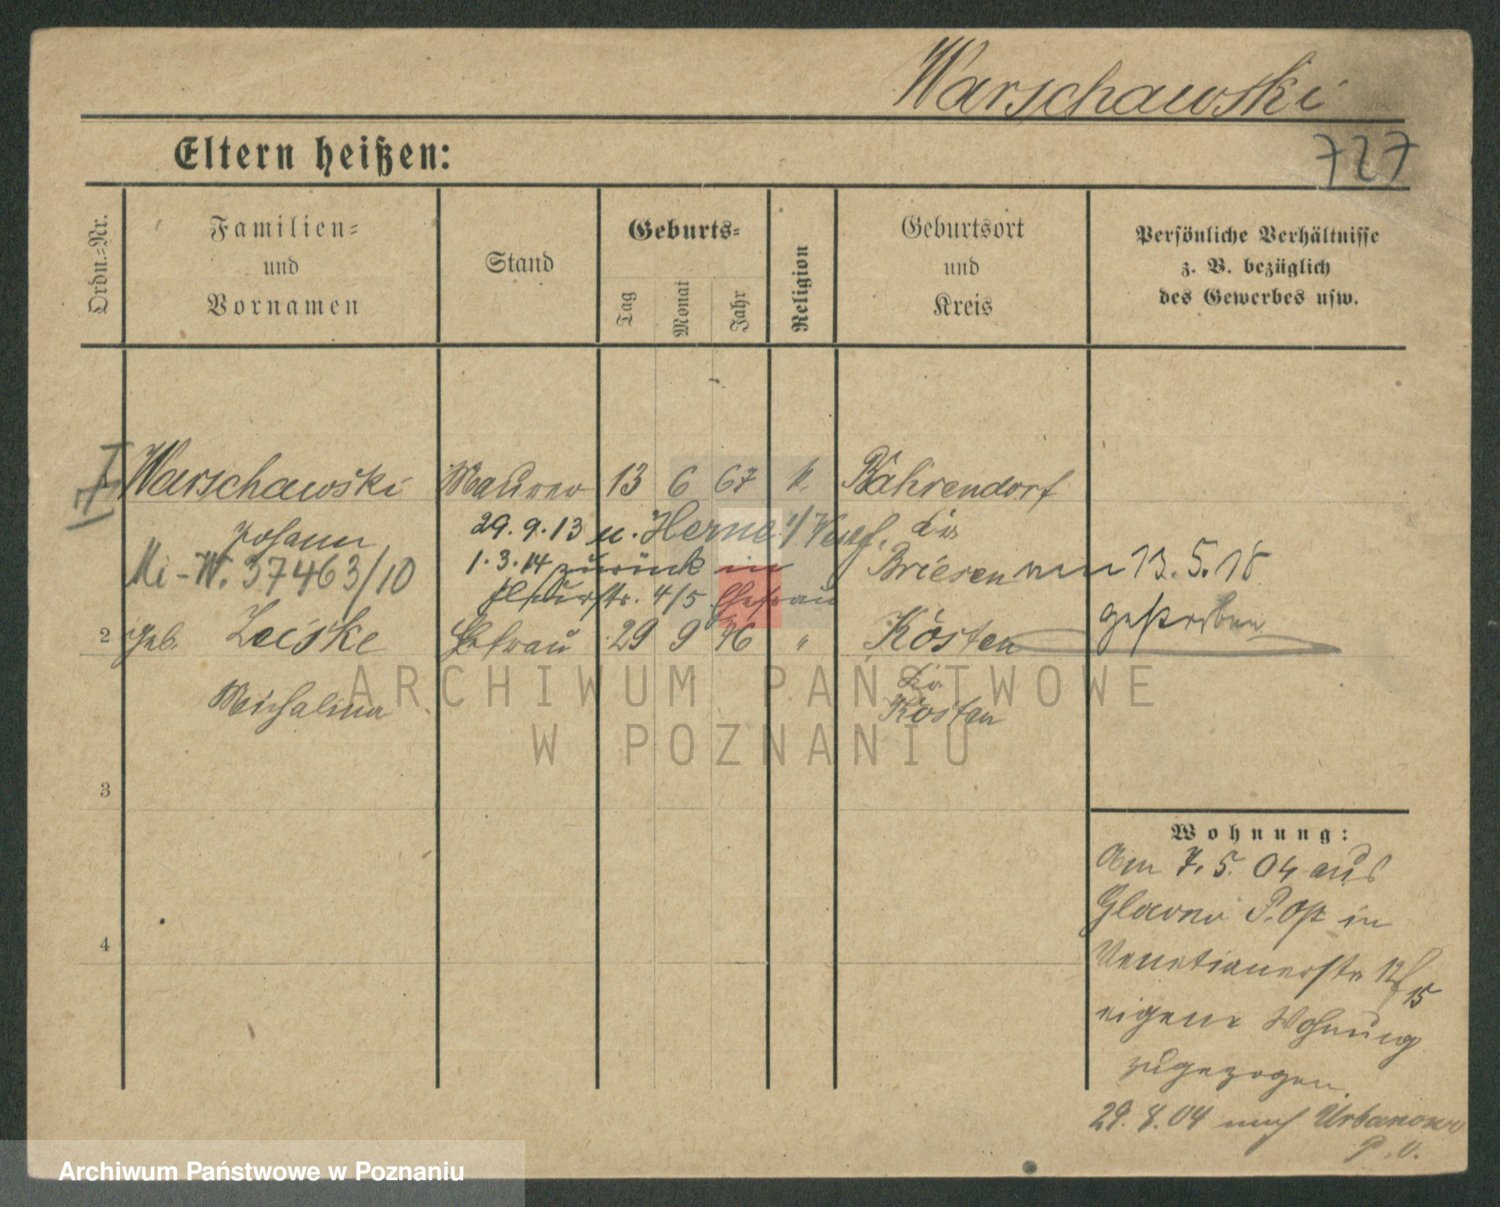 Warschawski
727
Eltern heißen:
Ordn.-Nr.
Familien-
und
Vornamen
Stand
Geburts-
Tag
Monat
Jahr
Religion
Geburtsort
und
Kreis
Persönliche Verhältnisse
z. B. bezüglich
des Gewerbes usw.
1 Warschawski Maurer 13 6 67 k Bährendorf
Johann 29.9.13 n. Herne i/Westf. Kr.
Mi-W. 37463/10 1.3.14 zurück in Briesen am 13.5.18
4/5 Ehefrau gestorben
2 geb. Zeiske Ehefrau 29 9 76 " Kosten
Michalina Kr.
Kosten
3
4
Wohnung:
Am 7.5.04 aus
Glowno P. Ost in
Venetianerstr 12/15
eigene Wohnung
zugezogen
29.8.04 nach Urbanowo
P. O.
ARCHIWUM PAŃSTWOWE
W POZNANIU
Archiwum Państwowe w Poznaniu